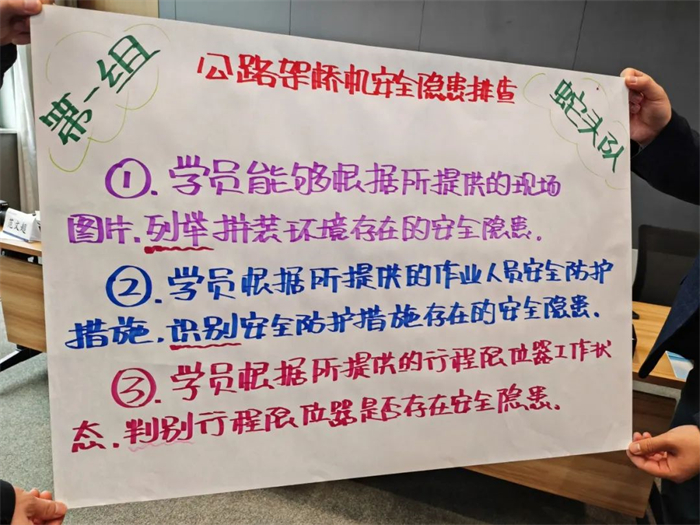 第一组
公路架桥机安全隐患排查
蛇头队
①.学员能够根据所提供的现场
图片,列举拼装环境存在的安全隐患.
②.学员根据所提供的作业人员安全防护
措施,识别安全防护措施存在的安全隐患.
③.学员根据所提供的行程限位器工作状
态,判别行程限位器是否存在安全隐患.